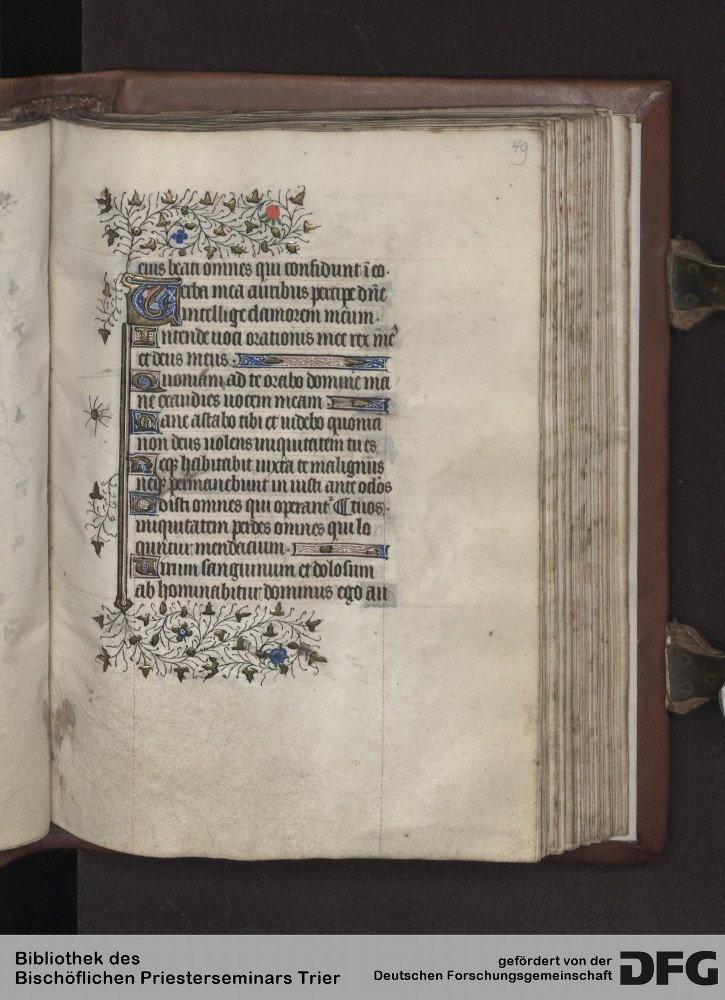 49
eius beati omnes qui confidunt ī eo.
Verba mea auribus percipe dñe
intellige clamorem meum.
Intende uoci orationis mee rex me᷒
et deus meus.
Quoniam ad te orabo domine ma
ne exaudies uocem meam.
Mane astabo tibi et uidebo quoniā
non deus uolens iniquitatem tu es
Neqȝ habitabit iuxta te malignus
neqȝ permanebunt in iusti ante oclos
Odisti omnes qui operant᷑ ¶ tuos.
iniquitatem perdes omnes qui lo
quntur mendacium.
Uirum sanguinum et dolosum
ab hominabitur dominus ego au
Bibliothek des
Bischöflichen Priesterseminars Trier
gefördert von der
Deutschen Forschungsgemeinschaft
DFG